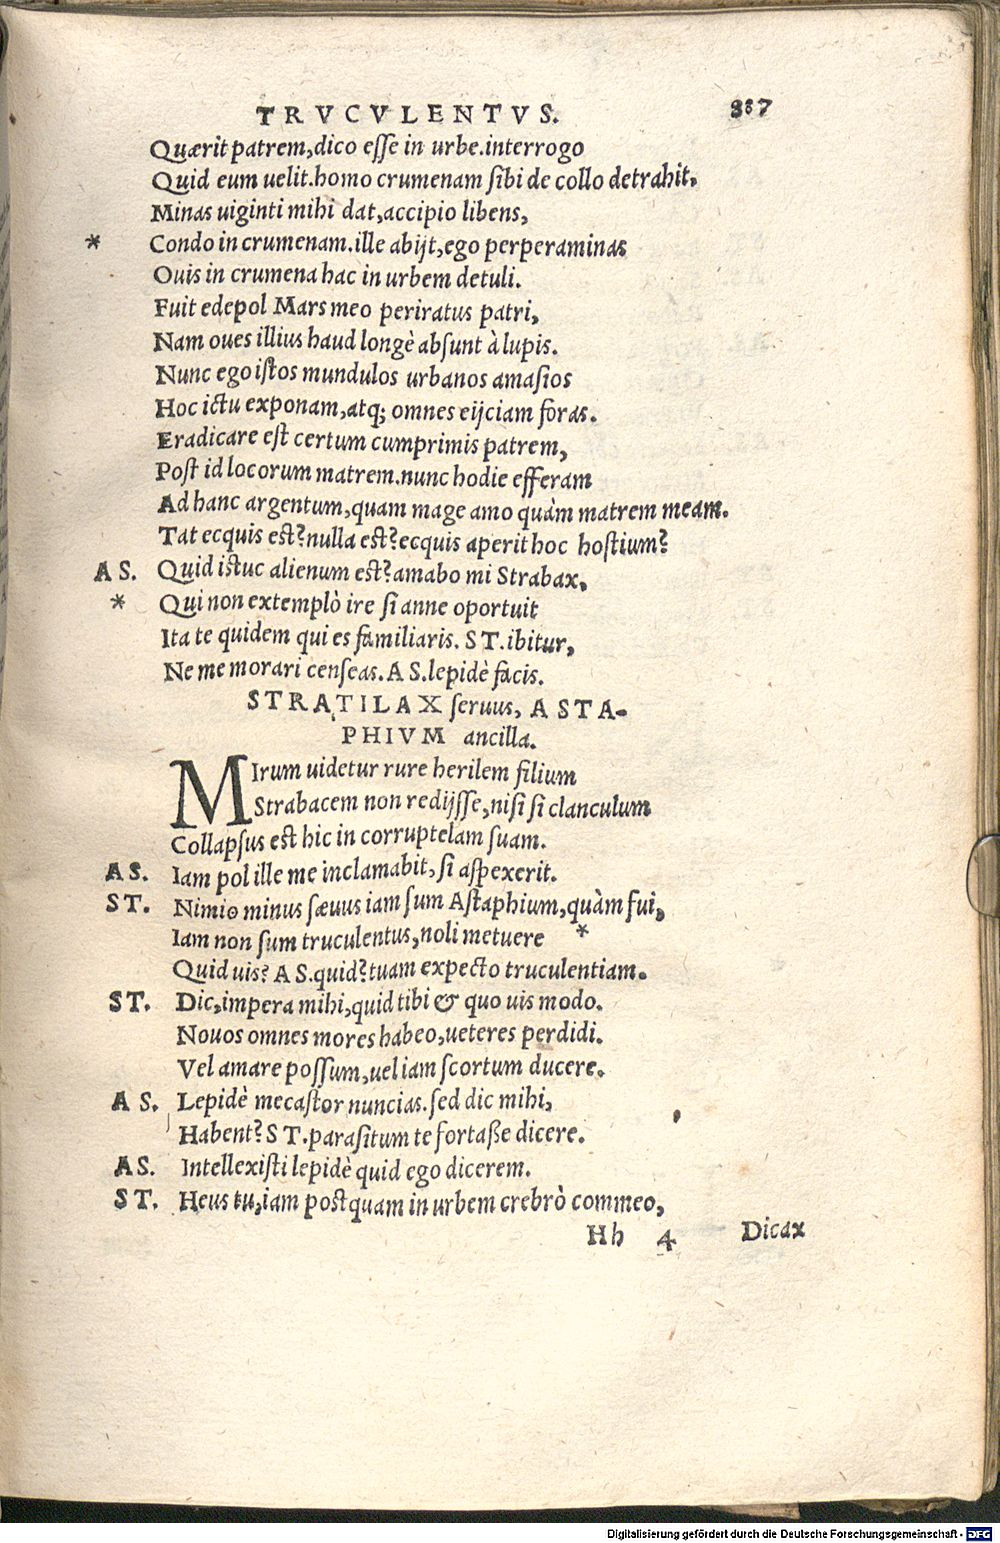 TRVCVLENTVS. 387
Quærit patrem, dico esse in urbe. interrogo
Quid eum uelit. homo crumenam sibi de collo detrahit,
Minas uiginti mihi dat, accipio libens,
* Condo in crumenam. ille abijt, ego perperaminas
Ouis in crumena hac in urbem detuli.
Fuit edepol Mars meo periratus patri,
Nam oues illius haud longè absunt à lupis.
Nunc ego istos mundulos urbanos amasios
Hoc ictu exponam, atq; omnes eijciam foras.
Eradicare est certum cumprimis patrem,
Post id locorum matrem. nunc hodie efferam
Ad hanc argentum, quam mage amo quàm matrem meam.
Tat ecquis est? nulla est? ecquis aperit hoc hostium?
AS. Quid istuc alienum est? amabo mi Strabax,
* Qui non extemplò ire si anne oportuit
Ita te quidem qui es familiaris. ST. ibitur,
Ne me morari censeas. AS. lepidè facis.
STRATILAX seruus, ASTA-
PHIVM ancilla.
MIrum uidetur rure herilem filium
Strabacem non redijsse, nisi si clanculum
Collapsus est hic in corruptelam suam.
AS. Iam pol ille me inclamabit, si aspexerit.
ST. Nimio minus sæuus iam sum Astaphium, quàm fui,
Iam non sum truculentus, noli metuere *
Quid uis? AS. quid? tuam expecto truculentiam.
ST. Dic, impera mihi, quid tibi & quo uis modo.
Nouos omnes mores habeo, ueteres perdidi.
Vel amare possum, uel iam scortum ducere.
AS. Lepidè mecastor nuncias. sed dic mihi,
Habent? ST. parasitum te fortaße dicere.
AS. Intellexisti lepidè quid ego dicerem.
ST. Heus tu, iam postquam in urbem crebrò commeo,
Hh 4 Dicax
Digitalisierung gefördert durch die Deutsche Forschungsgemeinschaft - DFG